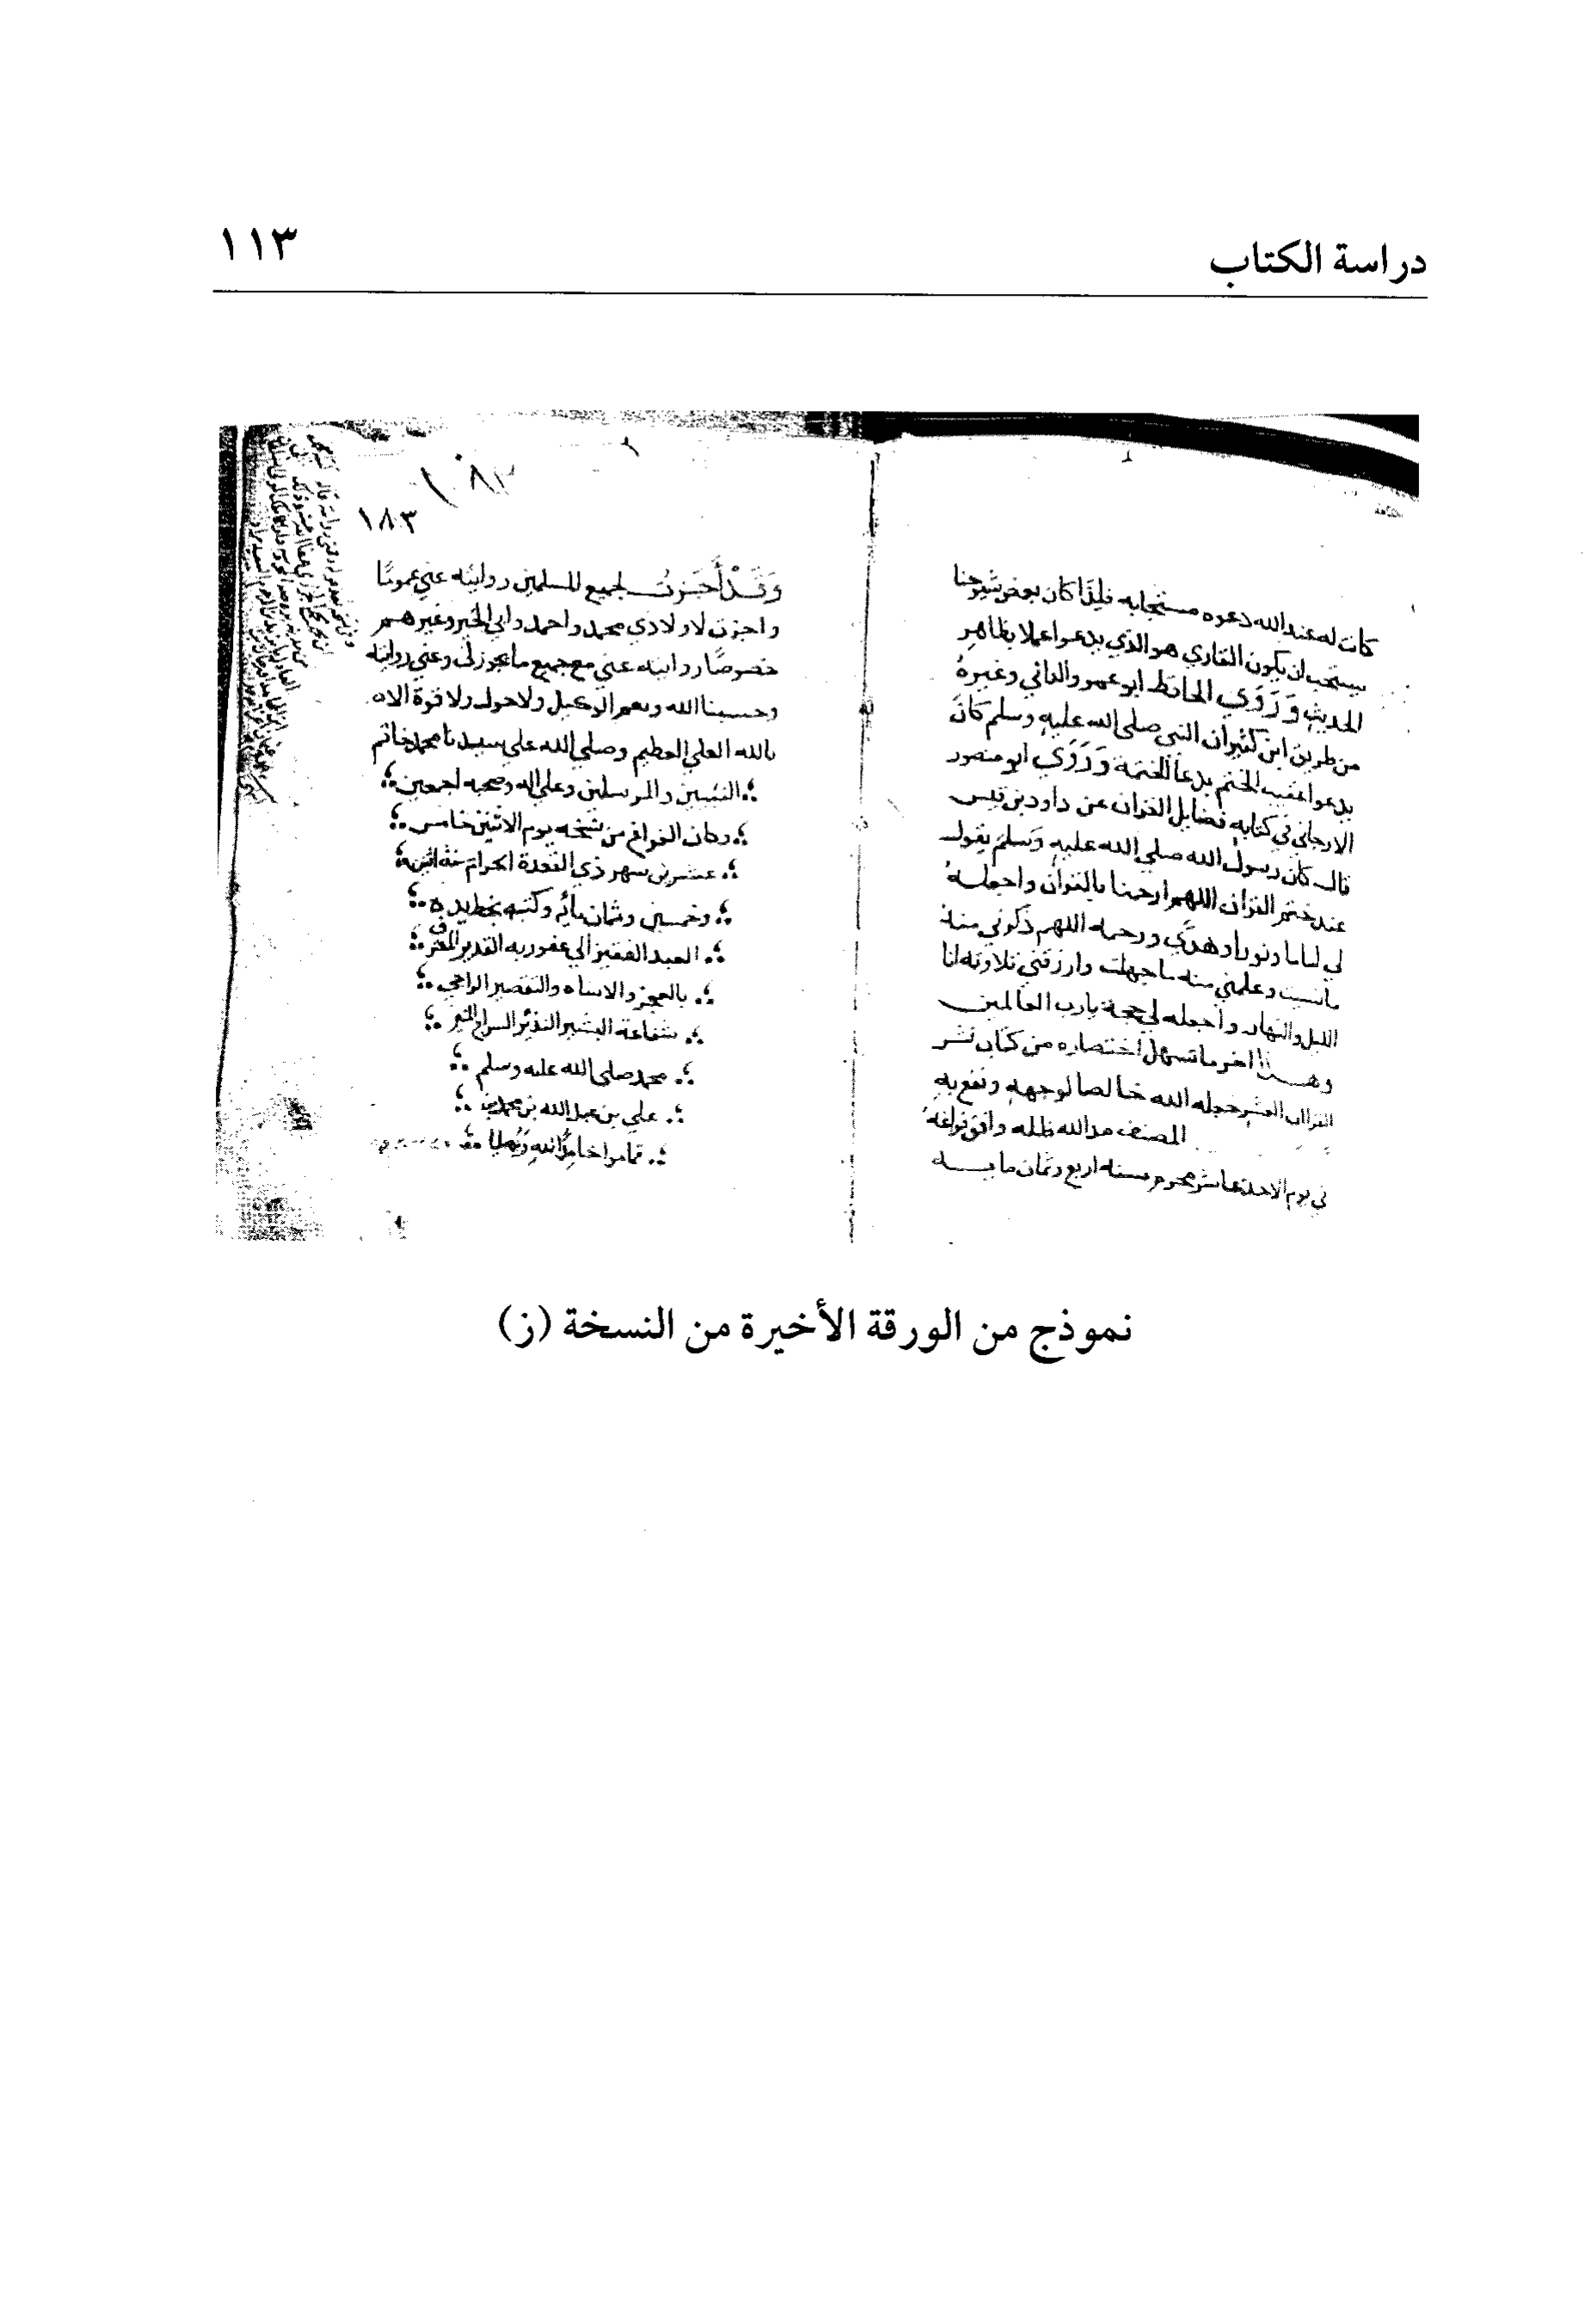 دراسة الكتاب
١١٣
كانت له عند الله دعوه مستجابه فلذا كان بعض شيوخنا
يستحب ان يكون القاري هو الذي يدعوا عملا بظاهر
الحديث وَرَوَي الحافظ ابو عمرو الداني وغيره
من طريق ابن كثير ان النبي صلى الله عليه وسلم كان
يدعوا عقيب الختم بدعا الختمة وَرَوَي ابو منصور
الارجاني في كتابه فضايل القران عن داود بن قيس
قال كان رسول الله صلي الله عليه وَسَلم يقول
عند ختم القران اللهم ارحمنا بالقران واجعله
لي اماما ونورا وهدًي ورحمه اللهم ذكرني منه
ما نسيت وعلمني منه ما جهلت وارزقني تلاوته انا
الليل والنهار واجعله لي حجة يا رب العالمين
وهذا اخر ما تسهل اختصاره من كتاب نشر
القراات العشر جعله الله خالصا لوجهه ونفع به
المصنف مد الله ظله وافق فراغه
في يوم الاحد عاشر محرم سنه اربع وثمان مايه
١٨٣
١٨٣
وَقَدْ أَجَزتُ لجميع المسلمين روايته عني عمومًا
واجزت لاولادي محمد واحمد وابي الخير وغيرهم
خصوصًا روايته عني مع جميع ما يجوز لي وعني روايته
وحسبنا الله ونعم الوكيل ولا حول ولا قوة الا
بالله العلي العظيم وصلي الله علي سيدنا محمد خاتم
النبيين والمرسلين وعلي اله وصحبه اجمعين
وكان الفراغ من نسخه يوم الاثنين خامس
عشرين شهر ذي القعدة الحرام سنة اثنين
وخمسين وثمان مائه وكتبه بخط يده
العبد الفقير الي عفو ربه القدير المعترف
بالعجز والاساه والتقصير الراجي
شفاعة البشير النذير السراج المنير
محمد صلي الله عليه وسلم
علي بن عبد الله بن محمد بن
حامدًا لله
نموذج من الورقة الأخيرة من النسخة (ز)